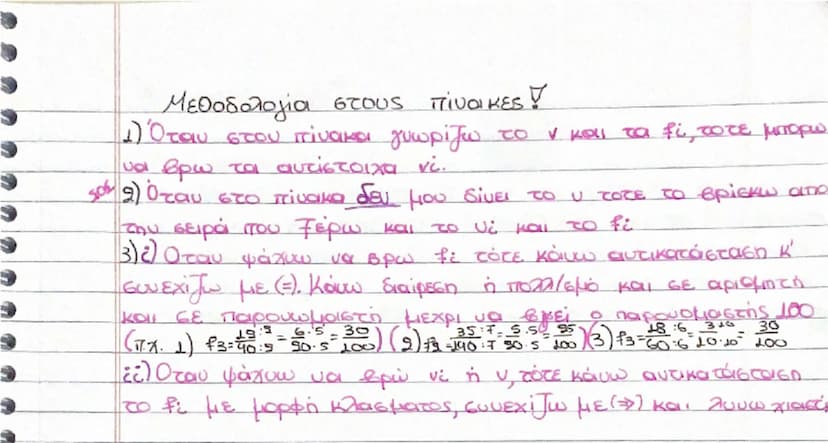 Μεθοδολογία στους πίνακες!
1) Όταν στον πίνακα γνωρίζω το ν και τα fi, τοτε μπορω
να βρω τα αντίστοιχα νi.
SOS 2) Όταν στο πίνακα δεν μου δίνει το ν τοτε το βρίσκω απο
την σειρά που ξέρω και το νi και το fi
3) i) Οταν ψάχνω να βρω fi τότε κάνω αντικατάσταση κ'
συνεχίζω με (=). Κάνω διαίρεση ή πολλ/σμό και σε αριθμητή
και σε παρονομαστή μεχρι να βγεί ο παρονομαστής 100
(πχ. 1) f3= 18:3/90:3 = 6·5/20·5 = 30/100) (2) f2= 35:7/140:7 = 5·5/20·5 = 25/100) (3) f3= 18:6/60:6 = 3·10/10·10 = 30/100
ii) Οταν ψάχνω να βρώ νi ή ν, τότε κάνω αντικατάσταση
το fi με μορφή κλασματος, συνεχίζω με (⇒) και λυνω χιαστί